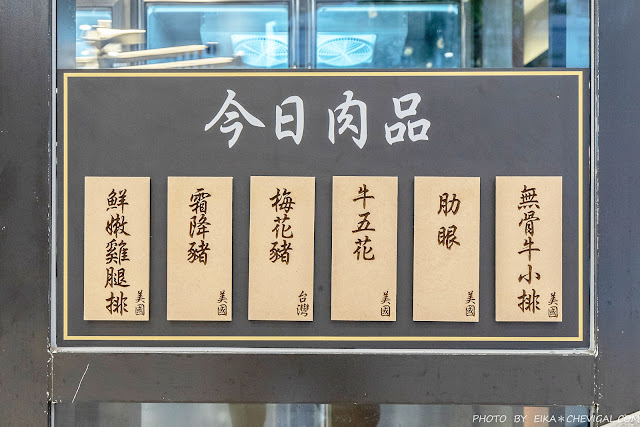 今日肉品
無骨牛小排
美國
肋眼
美國
牛五花
美國
梅花豬
台灣
霜降豬
美國
鮮嫩雞腿排
美國
PHOTO BY EIKA*CHEVIGAL.COM